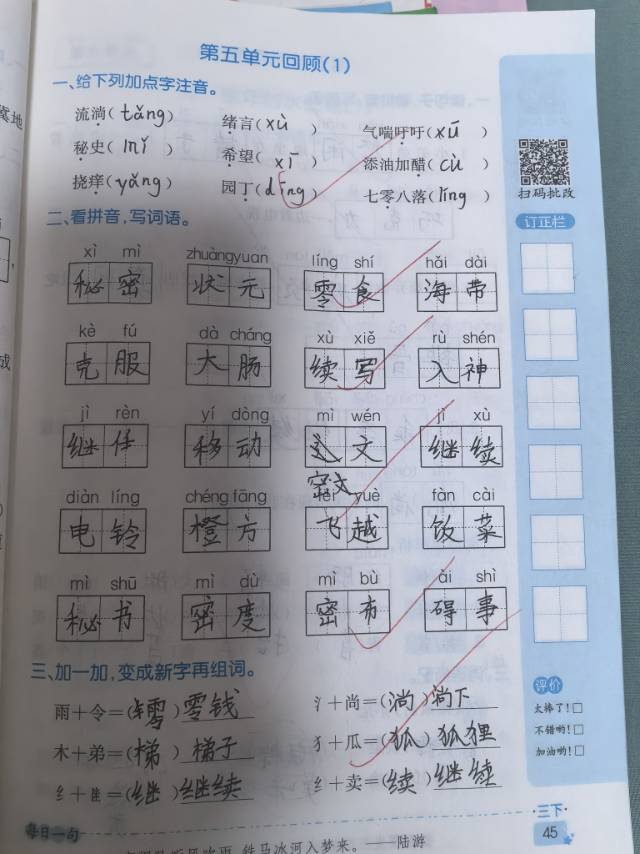 冀地
成
第五单元回顾(1)
一、给下列加点字注音。
流淌(tǎng) 绪言(xù) 气喘吁吁(xū)
秘史(mǐ) 希望(xī) 添油加醋(cù)
挠痒(yǎng) 园丁(dīng) 七零八落(líng)
扫码批改
二、看拼音,写词语。
订正栏
xì mì zhuàngyuan líng shí hǎi dài
秘密 状元 零食 海带
kè fú dà cháng xù xiě rù shén
克服 大肠 续写 入神
jì rèn yí dòng mì wén jì xù
继任 移动 文 继续
密文
diàn líng chéng fāng fēi yuè fàn cài
电铃 橙方 飞越 饭菜
mì shū mì dù mì bù ài shì
秘书 密度 密布 碍事
三、加一加,变成新字再组词。
雨+令=(零)零钱 氵+尚=(淌)淌下
木+弟=(梯)梯子 犭+瓜=(狐)狐狸
纟+=(继)继续 纟+卖=(续)继续
评价
太棒了!□
不错哟!□
加油哟!□
三下
45
每日一句
铁马冰河入梦来。——陆游